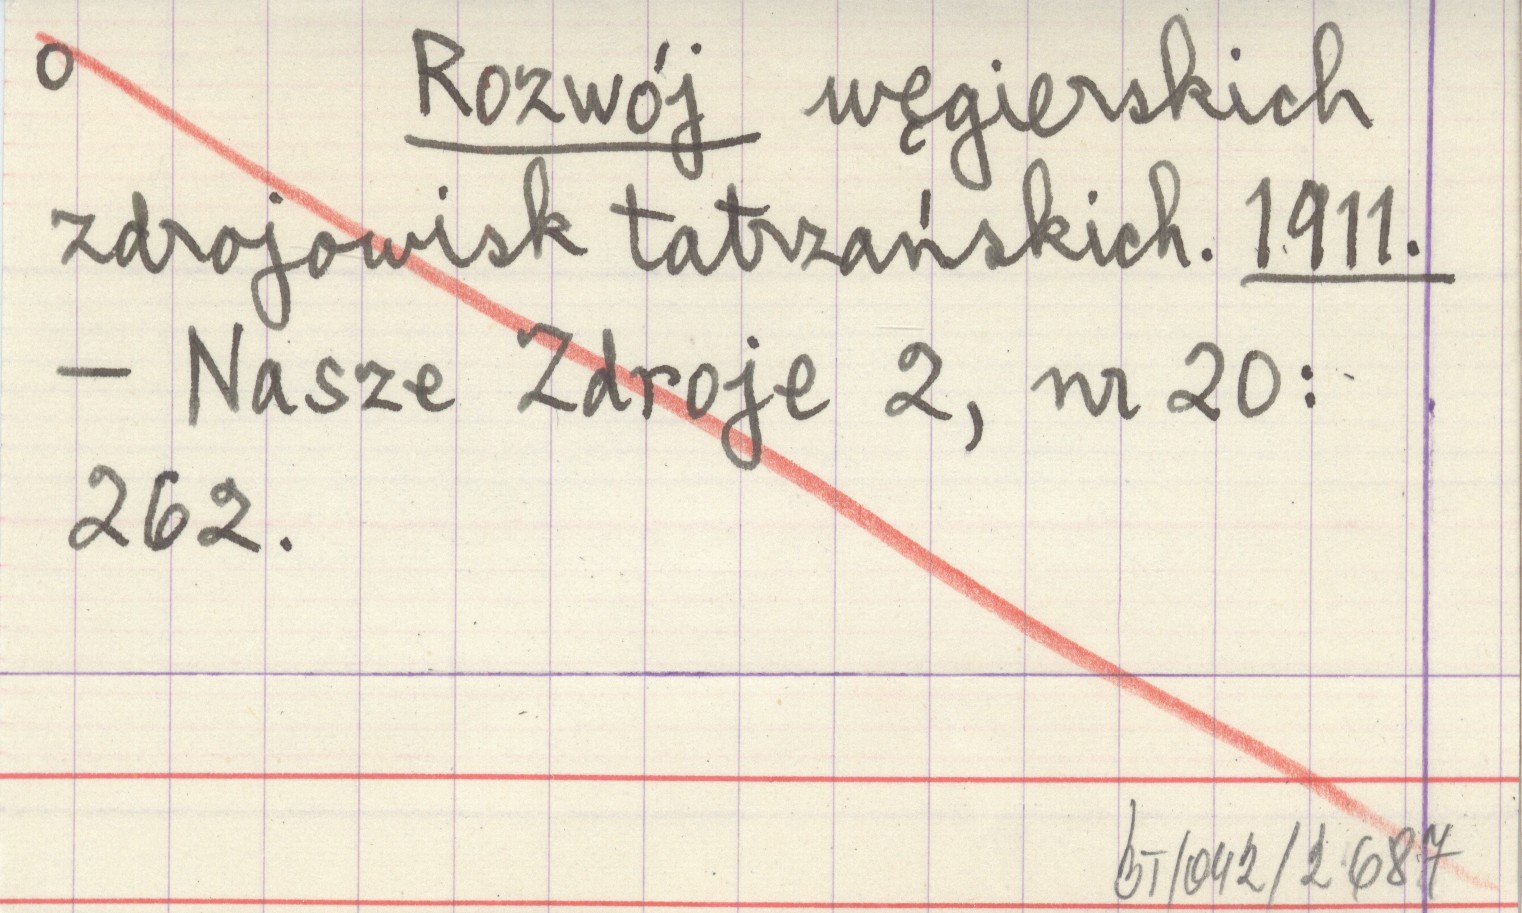 o Rozwój węgierskich
zdrojowisk tatrzańskich. 1911.
- Nasze Zdroje 2, nr 20:
262.
BT/042/2687